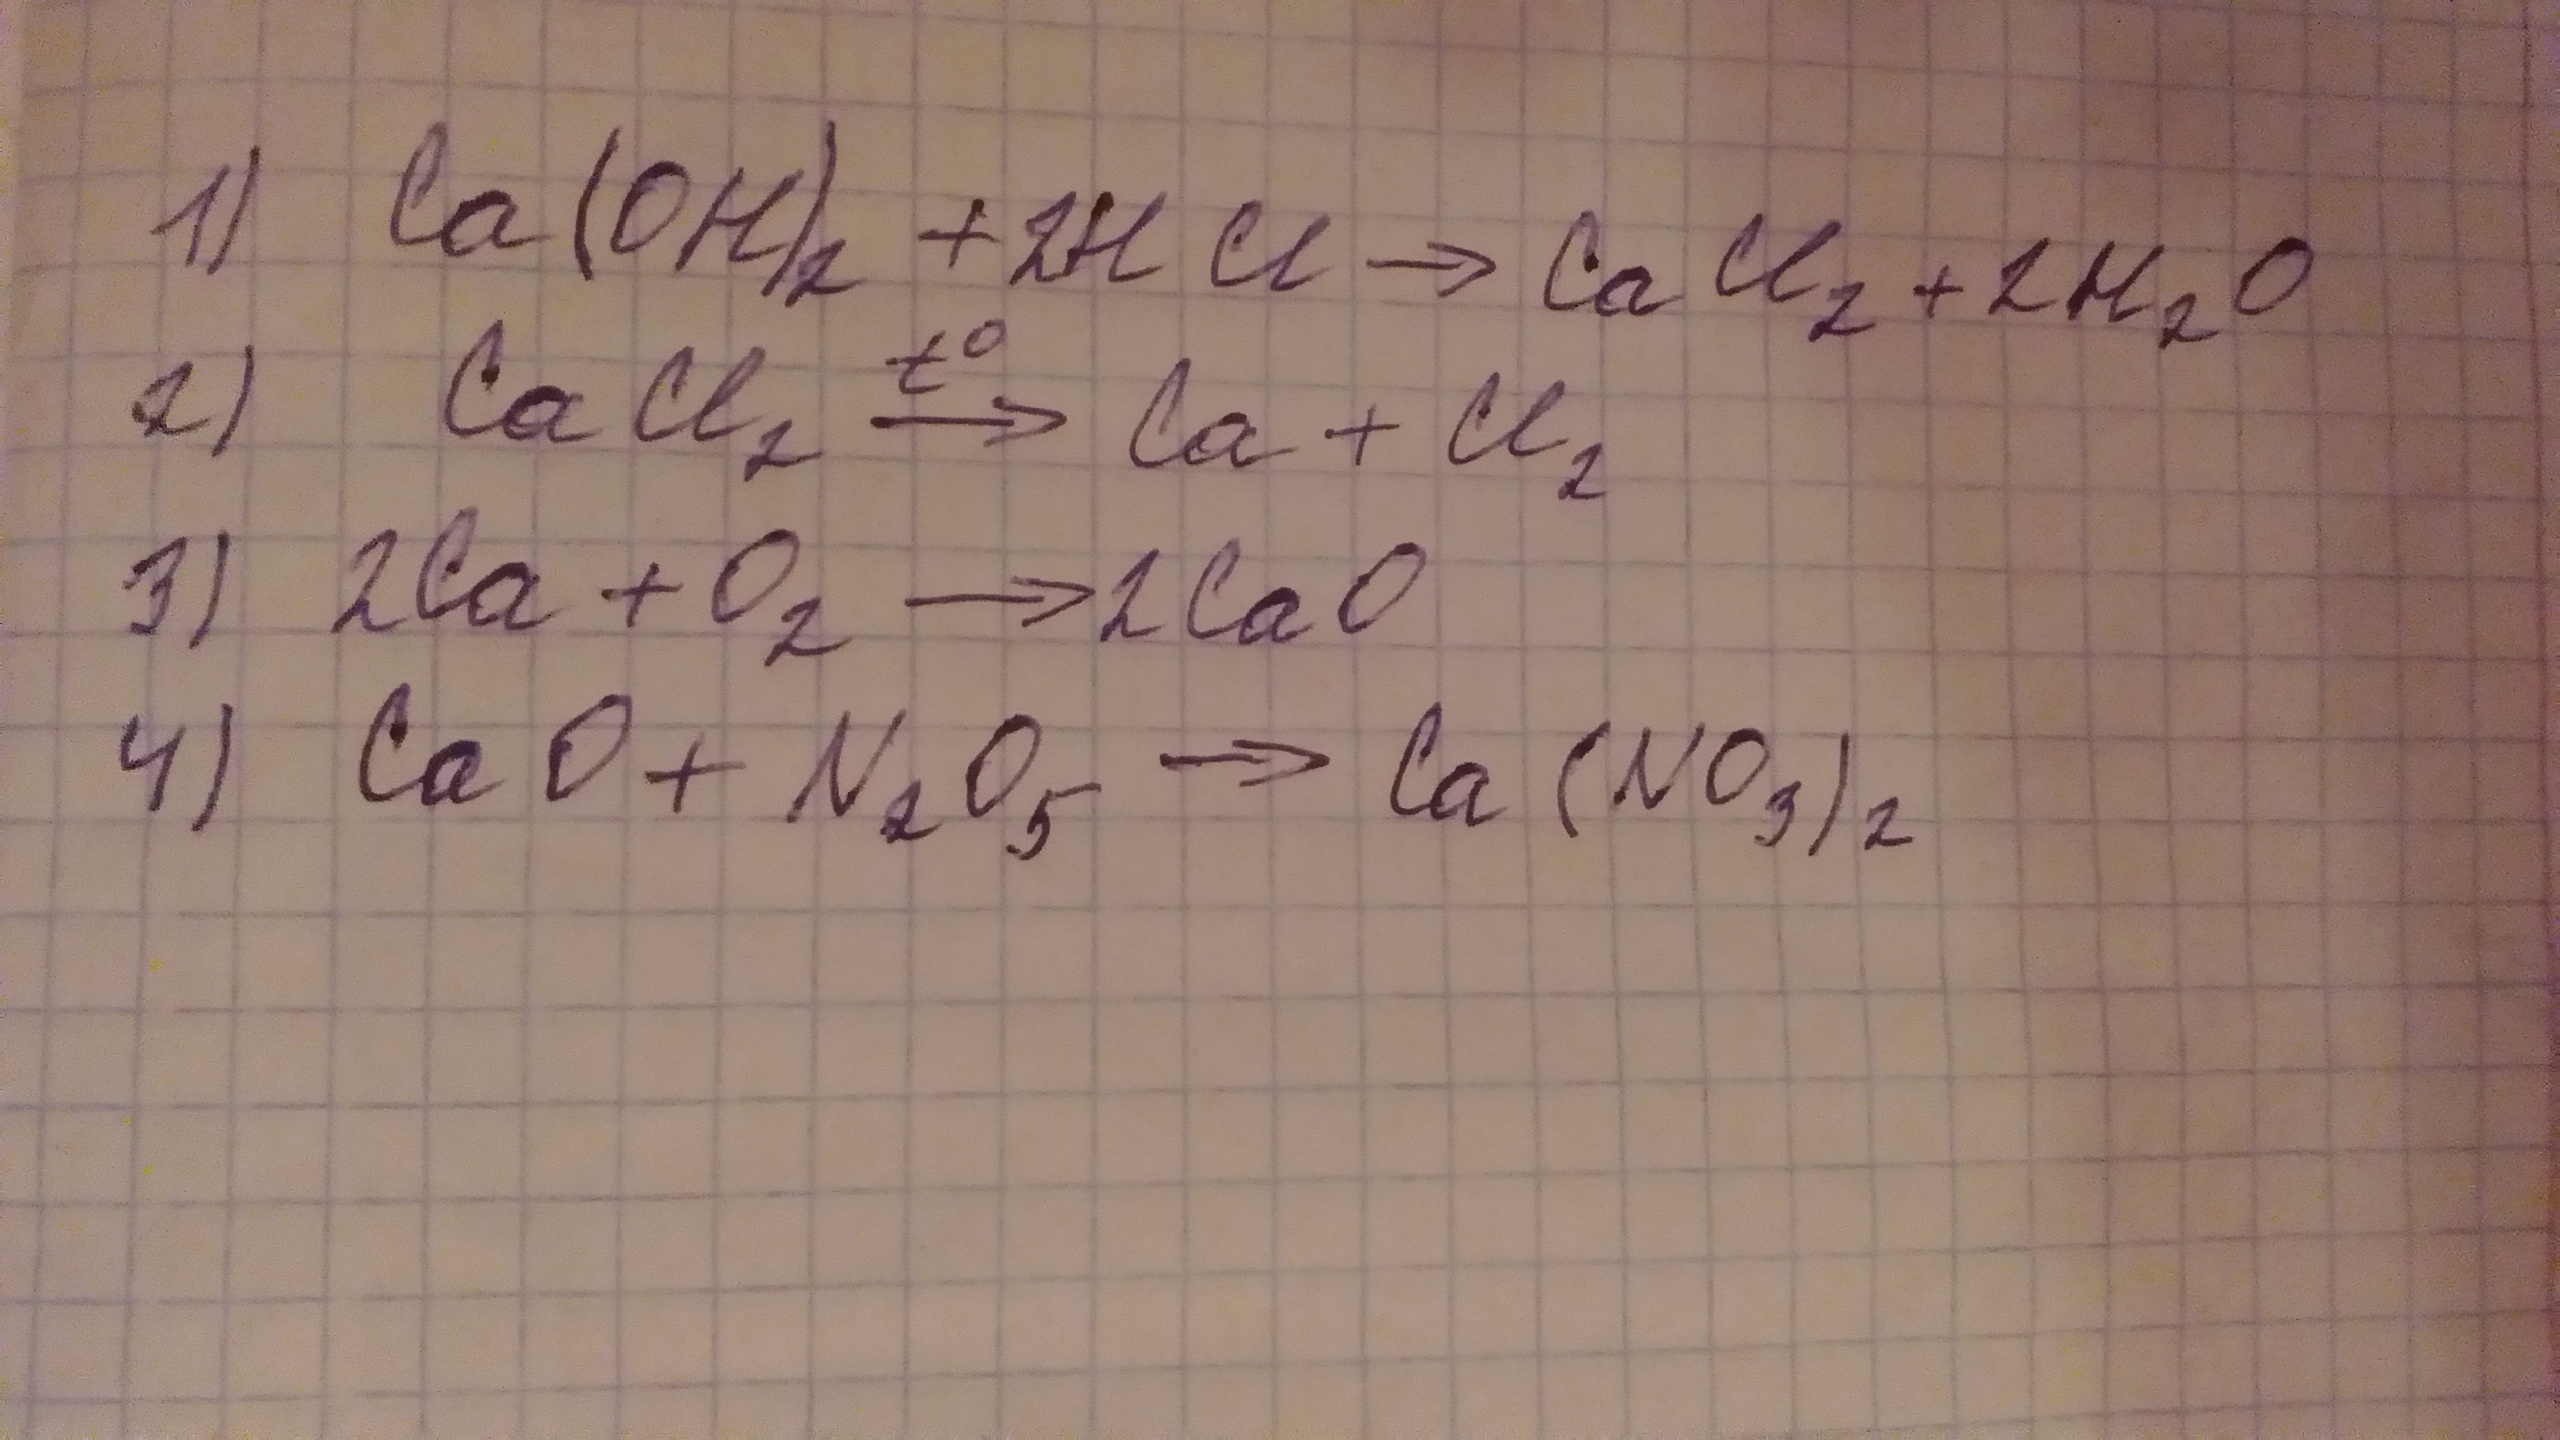 1) Ca(OH)₂ + 2HCl → CaCl₂ + 2H₂O
2) CaCl₂ t° → Ca + Cl₂
3) 2Ca + O₂ → 2CaO
4) CaO + N₂O₅ → Ca(NO₃)₂